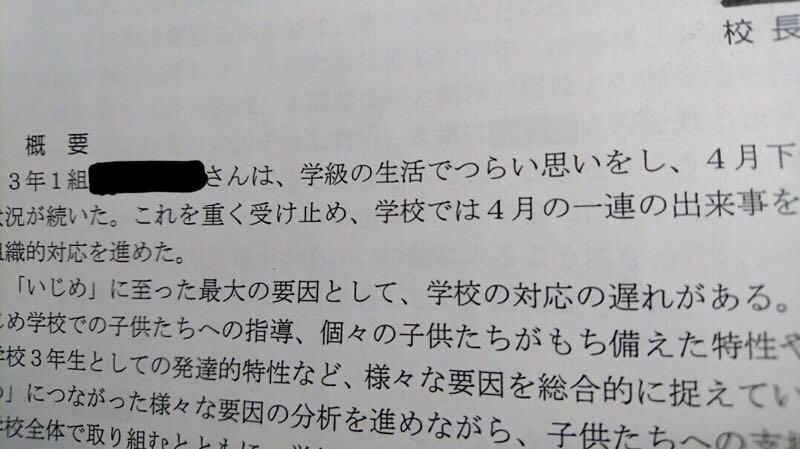 校長
概要
3年1組 さんは、学級の生活でつらい思いをし、4月下
状況が続いた。これを重く受け止め、学校では4月の一連の出来事を
組織的対応を進めた。
「いじめ」に至った最大の要因として、学校の対応の遅れがある。
じめ学校での子供たちへの指導、個々の子供たちがもち備えた特性や
学校3年生としての発達的特性など、様々な要因を総合的に捉えてい
め」につながった様々な要因の分析を進めながら、子供たちへの支
学校全体で取り組むとともに、